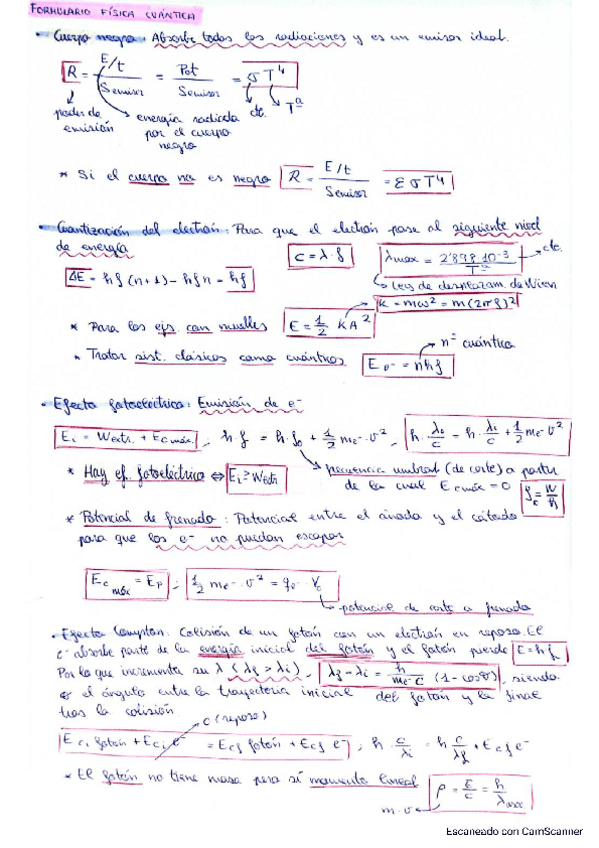 FORMULARIO FÍSICA CUÁNTICA
• Cuerpo negro: Absorbe todas las radiaciones y es un emisor ideal.
R = E/t / Semisor = Pot / Semisor = σ T⁴
poder de emisión
energía radiada por el cuerpo negro
cte.
Tª
* Si el cuerpo no es negro R = E/t / Semisor = ε σ T⁴
• Cuantización del electrón: Para que el electrón pase al siguiente nivel
de energía
c = λ · f
λmax = 2'898·10⁻³ / Tª → cte.
ΔE = h f (n+1) - h f n = h f
Ley de desplazam. de Wien
k = mω² = m(2πf)²
* Para los ejs. con muelles E = 1/2 KA²
nº cuántico
* Tratar sist. clásicos como cuánticos E = n h f
• Efecto fotoeléctrico: Emisión de e⁻
Ei = Wextr. + Ec máx. , h · f = h · f₀ + 1/2 me⁻ · v² ,
+ 1/2 me⁻ v²
* Hay ef. fotoeléctrico ⇔ Ei ≥ Wextr
frecuencia umbral (de corte) a partir
de la cual Ec máx = 0
* Potencial de frenado: Potencial entre el ánodo y el cátodo
para que los e⁻ no puedan escapar
Ec máx = Ep ; 1/2 me⁻ · v² = qe⁻ · V₀
potencial de corte o frenado
• Efecto Compton: Colisión de un fotón con un electrón en reposo. El
e⁻ absorbe parte de la energía inicial del fotón y el fotón pierde E = h f
Por lo que incrementa su λ (λf > λi), λf - λi = h / me⁻ c (1 - cosθ), siendo
θ el ángulo entre la trayectoria inicial del fotón y la final
tras la colisión
0 (reposo)
Eci fotón + Eci e⁻ = Ecf fotón + Ecf e⁻ ; h · c/λi = h c/λf + Ecf e⁻
* El fotón no tiene masa pero sí momento lineal
m · v
Escaneado con CamScanner